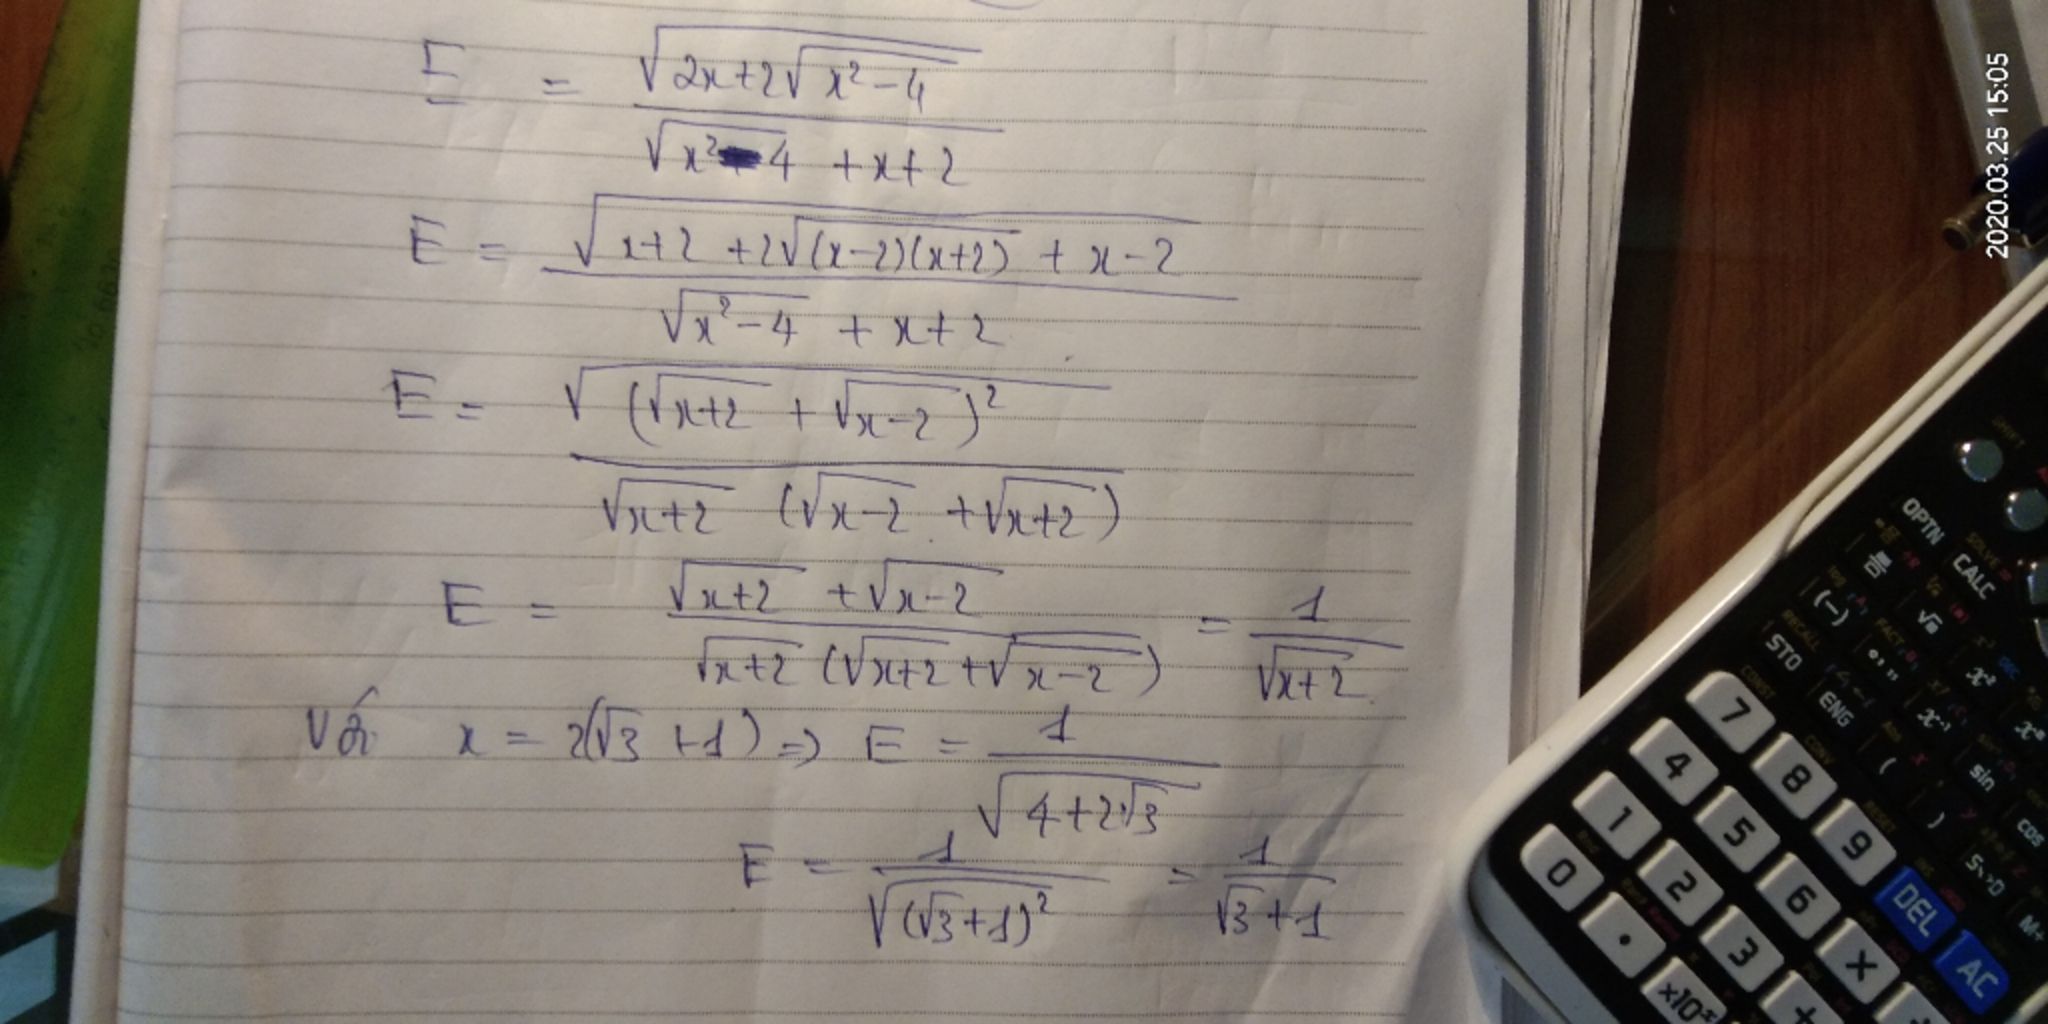 E = √(2x+2√(x²-4)) / (√(x²-4) + x+2)
E = √(x+2 +2√((x-2)(x+2)) + x-2) / (√(x²-4) + x+2)
E = √((√(x+2) + √(x-2))²) / (√(x+2) (√(x-2) + √(x+2)))
E = (√(x+2) + √(x-2)) / (√(x+2) (√(x+2) + √(x-2))) = 1 / √(x+2)
Với x = 2(√3 +1) => E = 1 / √(4+2√3)
E = 1 / √((√3+1)²) = 1 / (√3+1)
2020.03.25 15:05
SHIFT
OPTN CALC
SOLVE =
(-) √
RECALL FACT
STO x² x
ENG x⁻¹ sin cos
( ) S⇔D M+
CONST
7 8 9 DEL AC
4 5 6 ×
1 2 3 +
0 . ×10ˣ